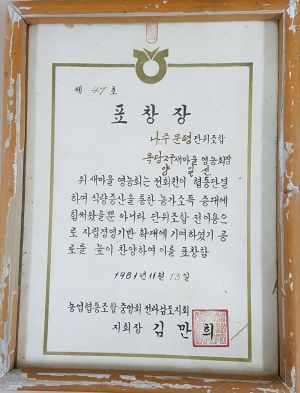 제 47 호
표창장
나주문평단위조합
새마을 영농회장
위 새마을 영농회는 전회원이 협동단결
하여 식량증산을 통한 농가소득 증대에
힘써왔을뿐 아니라 단위조합 전이용으
로 자립경영기반 확대에 기여하였기 공
로를 높이 찬양하여 이를 표창함
1981년 11월 13일
농업협동조합 중앙회 전라남도지회
지회장 김만희